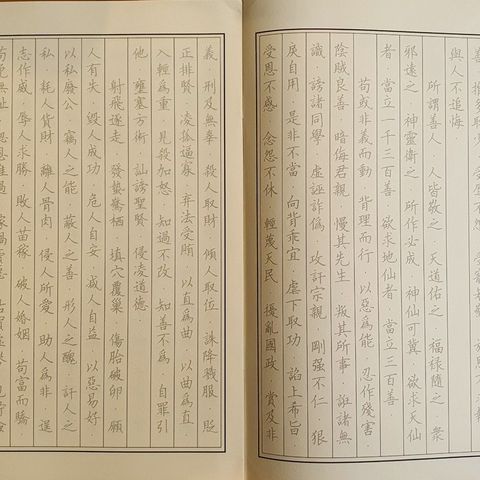 與人不追悔
所謂善人·人皆敬之·天道佑之·福祿隨之·衆
邪遠之·神靈衛之·所作必成·神仙可冀·欲求天仙
者·當立一千三百善·欲求地仙者·當立三百善
苟或非義而動·背理而行·以惡為能·忍作殘害·
陰賊良善·暗侮君親·慢其先生·叛其所事·誑諸無
識·謗諸同學·虛誣詐偽·攻訐宗親·剛强不仁·狠
戾自用·是非不當·向背乖宜·虐下取功·諂上希旨·
受恩不感·念怨不休·輕蔑天民·擾亂國政·賞及非
義·刑及無辜·殺人取財·傾人取位·誅降戮服·貶
正排賢·凌孤逼寡·棄法受賂·以直為曲·以曲為直·
入輕為重·見殺加怒·知過不改·知善不為·自罪引
他·壅塞方術·訕謗聖賢·侵凌道德
射飛逐走·發蟄驚棲·填穴覆巢·傷胎破卵·願
人有失·毀人成功·危人自安·減人自益·以惡易好·
以私廢公·竊人之能·蔽人之善·形人之醜·訐人之
私·耗人貨財·離人骨肉·侵人所愛·助人為非·逞
志作威·辱人求勝·敗人苗稼·破人婚姻·苟富而驕·